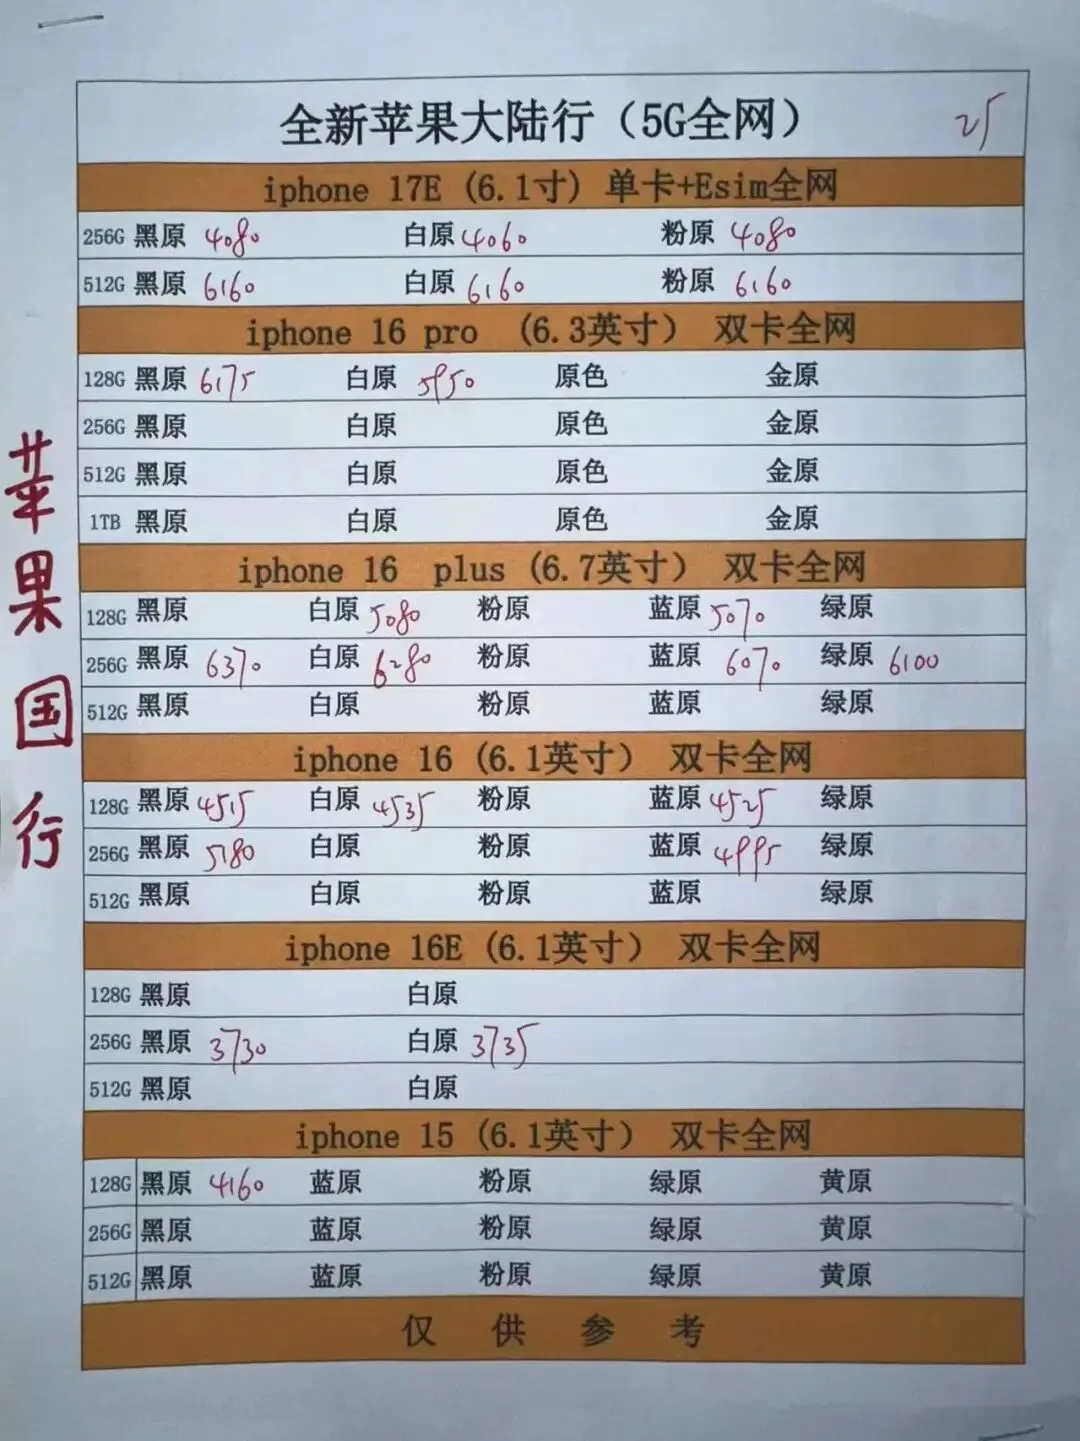 全新苹果大陆行（5G全网） 25
iphone 17E (6.1寸) 单卡+Esim全网
256G 黑原 4080 白原 4060 粉原 4080
512G 黑原 6160 白原 6160 粉原 6160
iphone 16 pro (6.3英寸) 双卡全网
128G 黑原 6175 白原 5950 原色 金原
256G 黑原 白原 原色 金原
512G 黑原 白原 原色 金原
1TB 黑原 白原 原色 金原
iphone 16 plus (6.7英寸) 双卡全网
128G 黑原 白原 5080 粉原 蓝原 5070 绿原
256G 黑原 6370 白原 6280 粉原 蓝原 6070 绿原 6100
512G 黑原 白原 粉原 蓝原 绿原
iphone 16 (6.1英寸) 双卡全网
128G 黑原 4515 白原 4535 粉原 蓝原 4525 绿原
256G 黑原 5180 白原 粉原 蓝原 4995 绿原
512G 黑原 白原 粉原 蓝原 绿原
iphone 16E (6.1英寸) 双卡全网
128G 黑原 白原
256G 黑原 3730 白原 3735
512G 黑原 白原
iphone 15 (6.1英寸) 双卡全网
128G 黑原 4160 蓝原 粉原 绿原 黄原
256G 黑原 蓝原 粉原 绿原 黄原
512G 黑原 蓝原 粉原 绿原 黄原
仅供参考
苹果国行